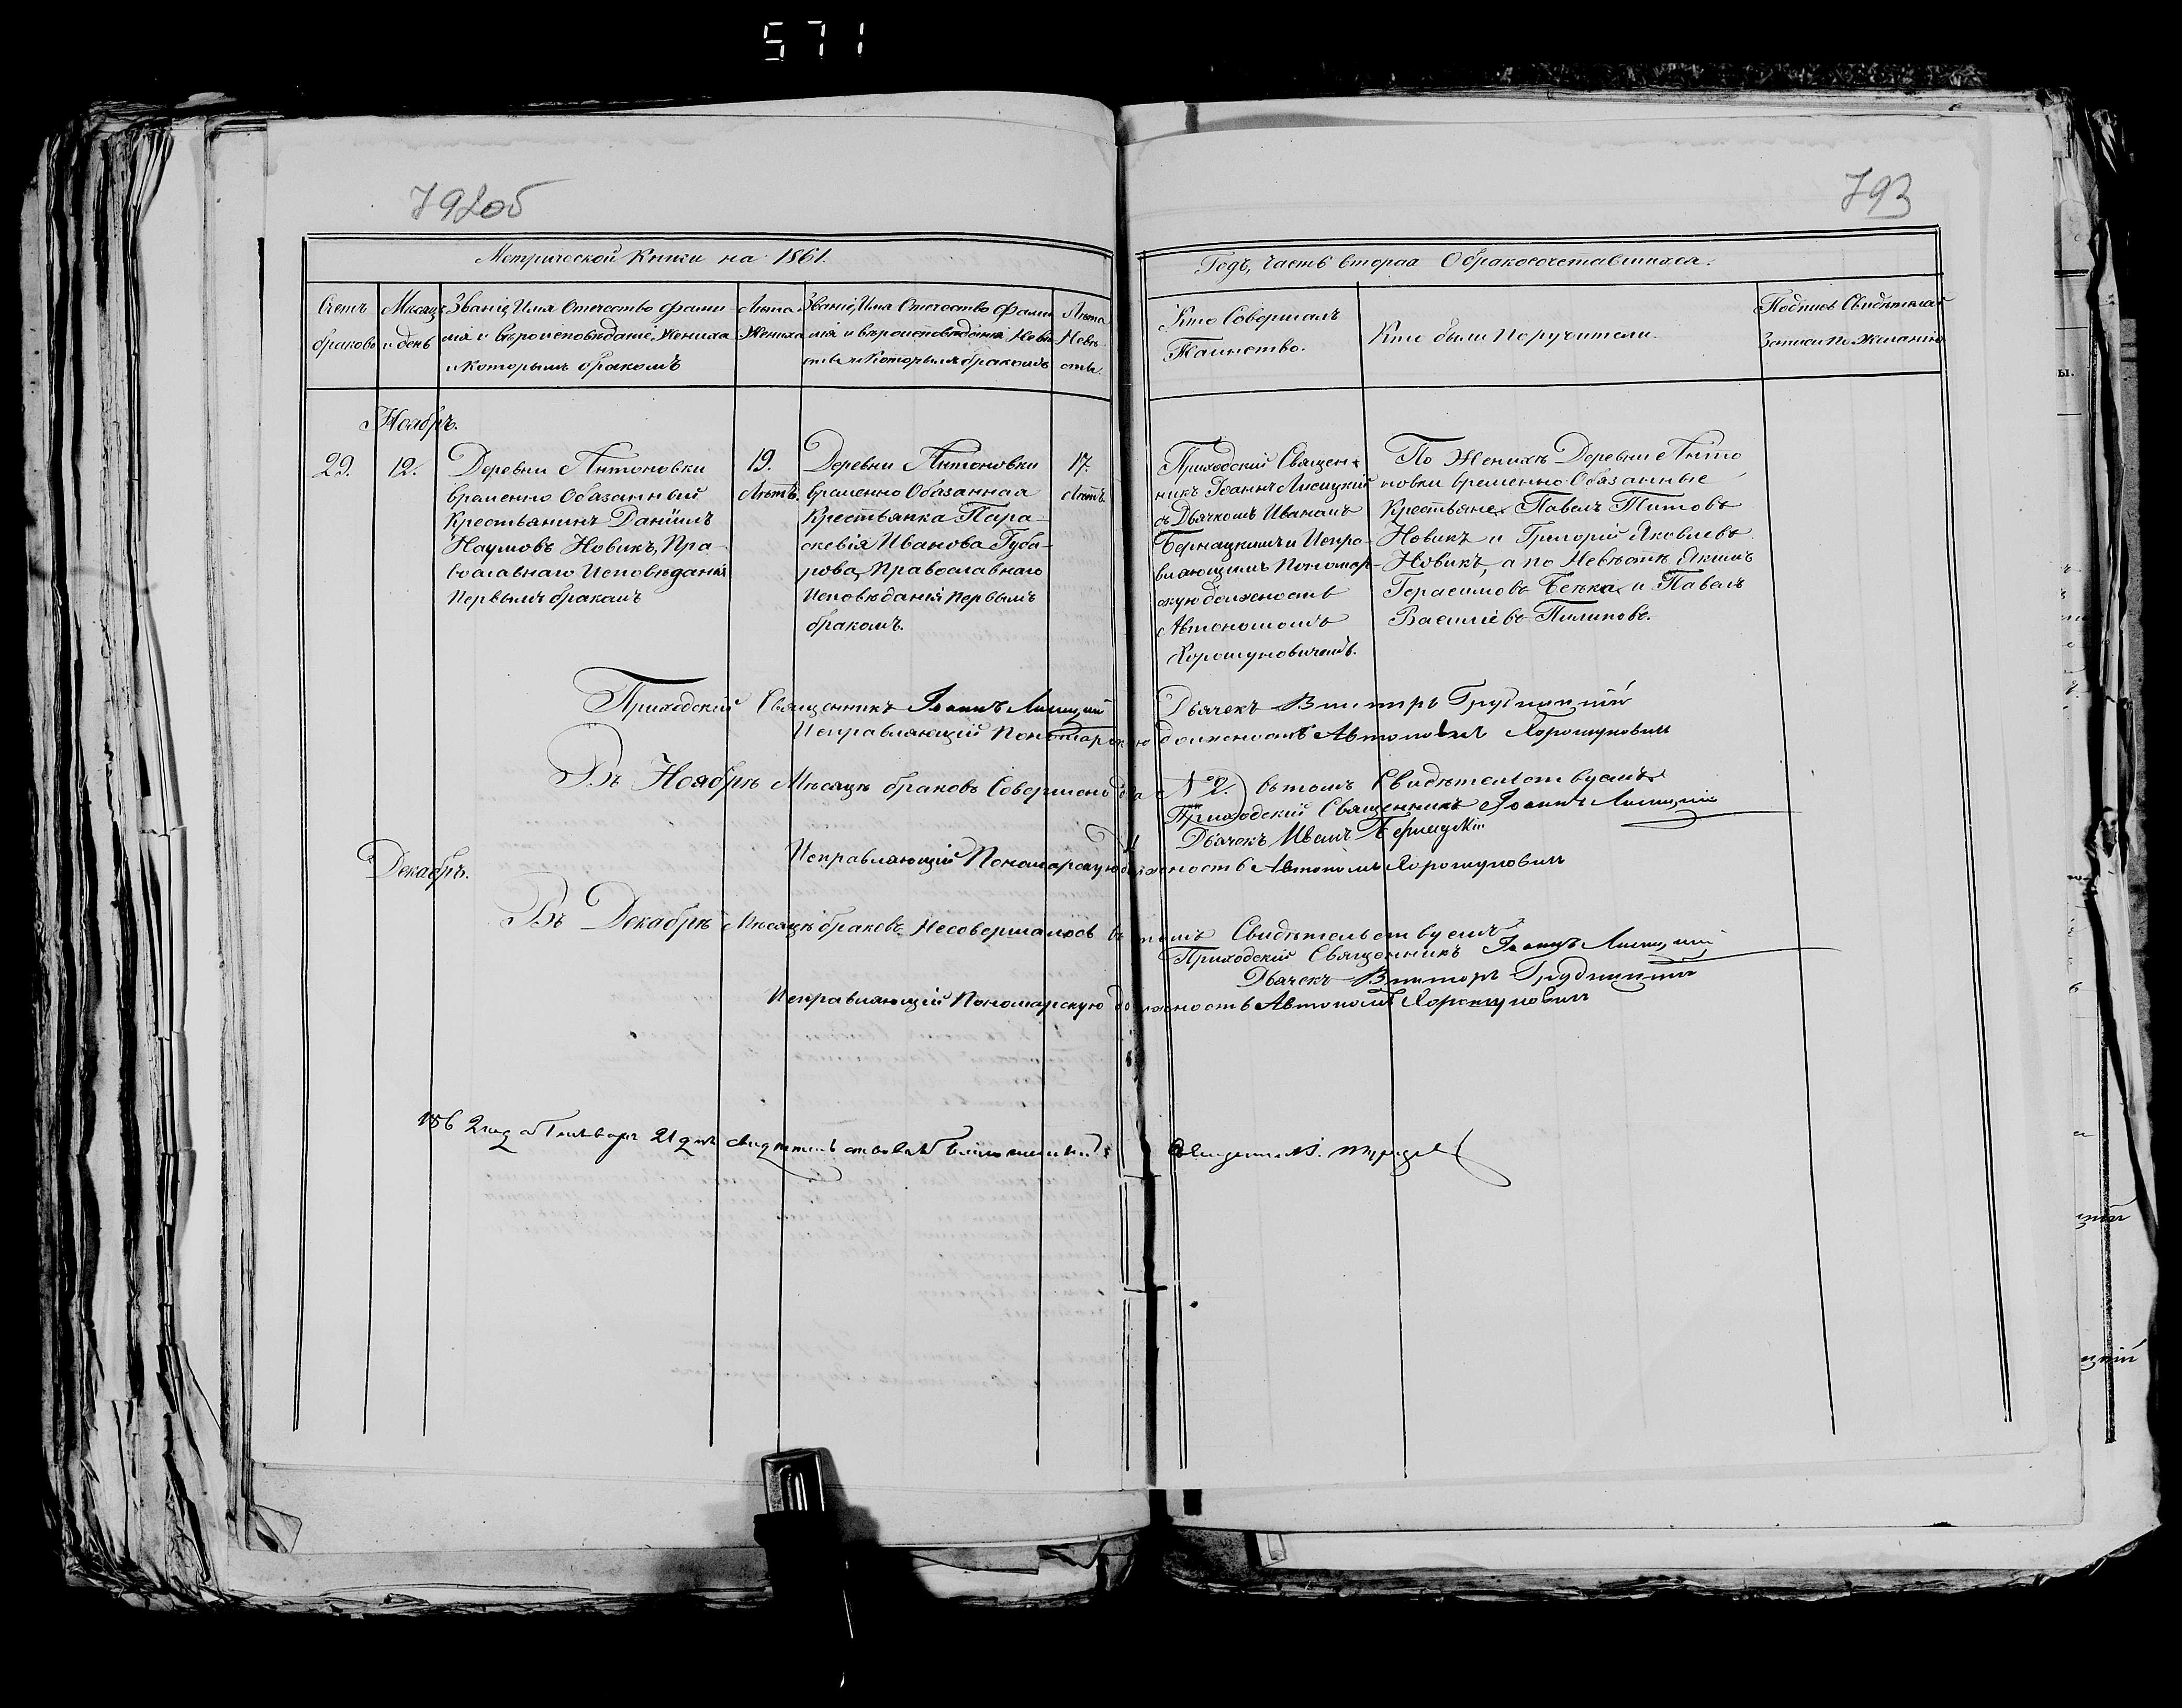 571
792об
793
Метрической Книги на 1861.
Годъ, часть вторая О бракосочетавшихся.
Счетъ браковъ
Месяцъ и день
Званіе, Имя Отечество фами
лія и вероисповѣданіе Жениха
и Которымъ бракомъ
Лѣта
Жениха
Званіе, Имя Отечество фами
лія и вѣроисповѣданія Невѣ
сты и Которымъ бракомъ
Лѣта
Невѣ-
сты.
Кто Совершалъ
Таинство.
Кто были Поручители.
Подпись Свидѣтелей
Записи По Желанію
Ноябрь.
29.
12.
Деревни Антоновки
временно Обязанный
Крестьянинъ Даніилъ
Наумовъ Новикъ, Пра-
вославнаго Исповѣданія
Первымъ бракомъ
19.
Лѣтъ.
Деревни Антоновки
временно Обязанная
Крестьянка Пара-
скевія Иванова Губа-
рова, Православнаго
Исповѣданія первымъ
бракомъ.
17.
Лѣтъ.
Приходскій Священ-
никъ Іоаннъ Лисицкій
съ Дьячкомъ Иваномъ
Бернацкимъ и Испра-
вляющимъ Пономар-
скую должность
Автономомъ
Хорошуновичемъ.
По Женихѣ Деревни Анто
новки временно Обязанные
Крестьяне Павелъ Титовъ
Новикъ и Григорій Яковлевъ
Новикъ, а по Невѣстѣ Якимъ
Герасимовъ Бенка и Павелъ
Василіевъ Пилиповъ.
Приходскій Священникъ Іоаннъ Лисицкій
Дьячекъ Викторъ Грудницкій
Исправляющій Пономарскую должность Автономъ Хорошуновичъ
Въ Ноябрѣ Мѣсяцѣ браковъ Совершено два № 2.) въ томъ Свидѣтельствуемъ
Приходскій Священникъ Іоаннъ Лисицкій
Дьячекъ Иванъ Бернацкій
Исправляющій Пономарскую должность Автономъ Хорошуновичъ
Декабрь.
Въ Декабрѣ Мѣсяцѣ браковъ Несовершалось въ томъ Свидѣтельствуемъ
Приходскій Священникъ Іоаннъ Лисицкій
Дьячекъ Викторъ Грудницкій
Исправляющій Пономарскую должность Автономъ Хорошуновичъ
1862 года Января 21 дня свидѣтельствовалъ